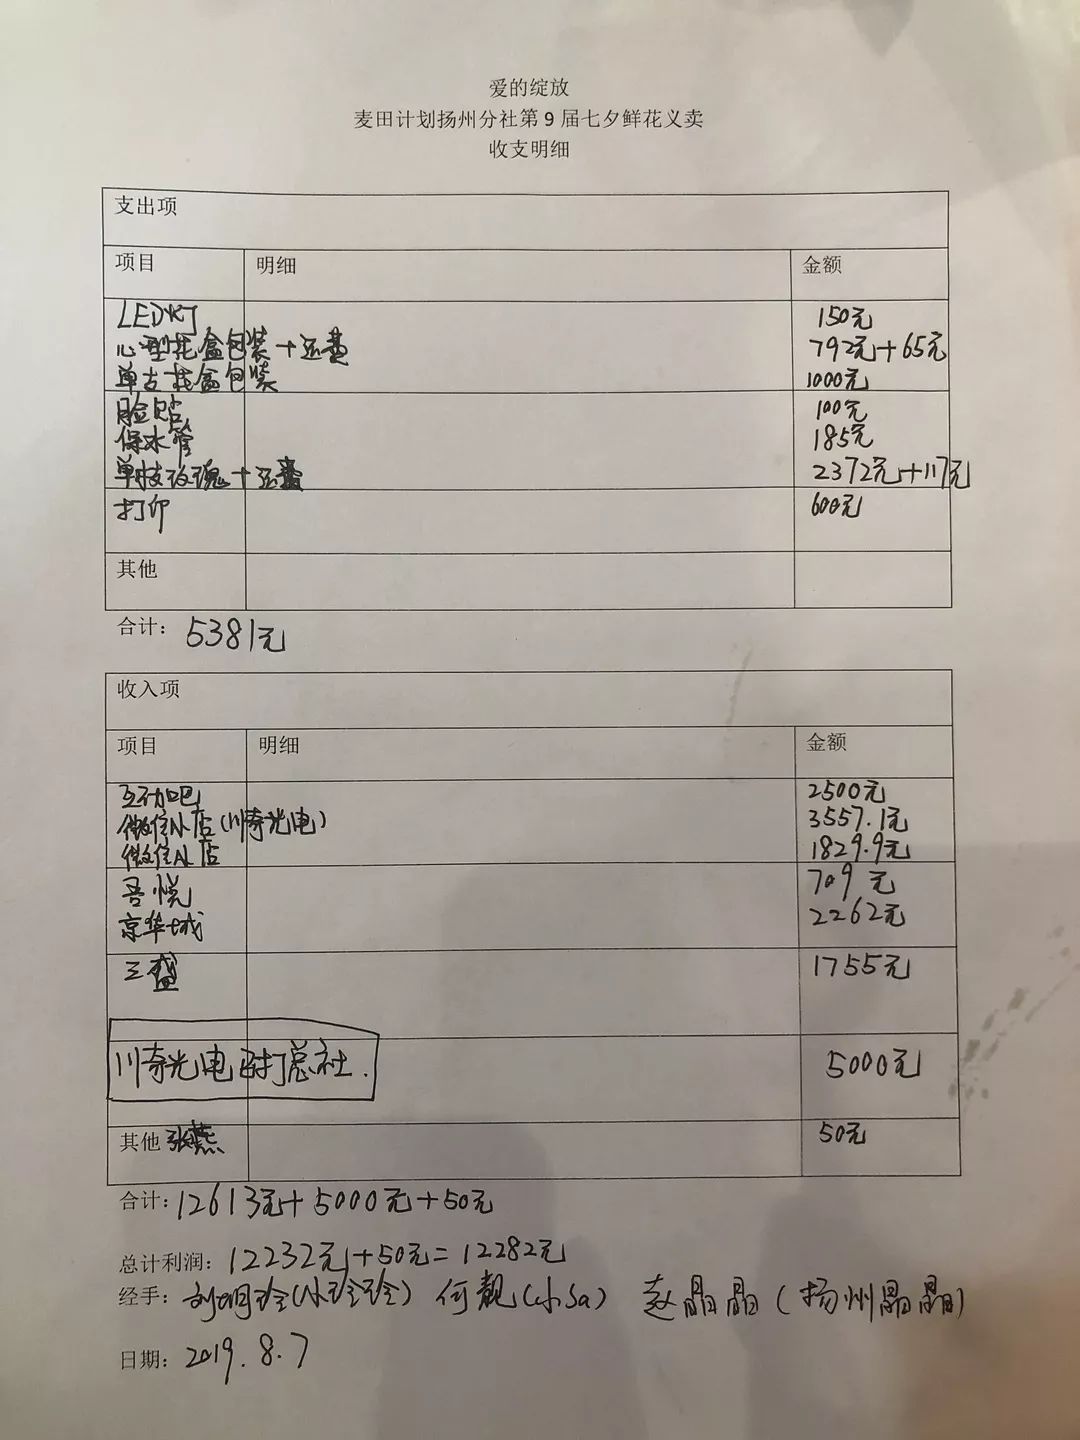 爱的绽放
麦田计划扬州分社第9届七夕鲜花义卖
收支明细
支出项
项目 明细 金额
LED灯 150元
心型花盒包装+运费 792元+65元
单支花盒包装 1000元
脸贴 100元
保水管 185元
单枝玫瑰+运费 2372元+117元
打印 600元
其他
合计: 5381元
收入项
项目 明细 金额
互动吧 2500元
微信小店(川奇光电) 3557.1元
微信小店 1829.9元
吾悦 709元
京华城 2262元
三盛 1755元
川奇光电 打总社. 5000元
其他 张燕 50元
合计:12613元+5000元+50元
总计利润: 12232元+50元=12282元
经手: 刘明玲(小玲玲) 何靓(小Sa) 赵晶晶(扬州晶晶)
日期: 2019.8.7